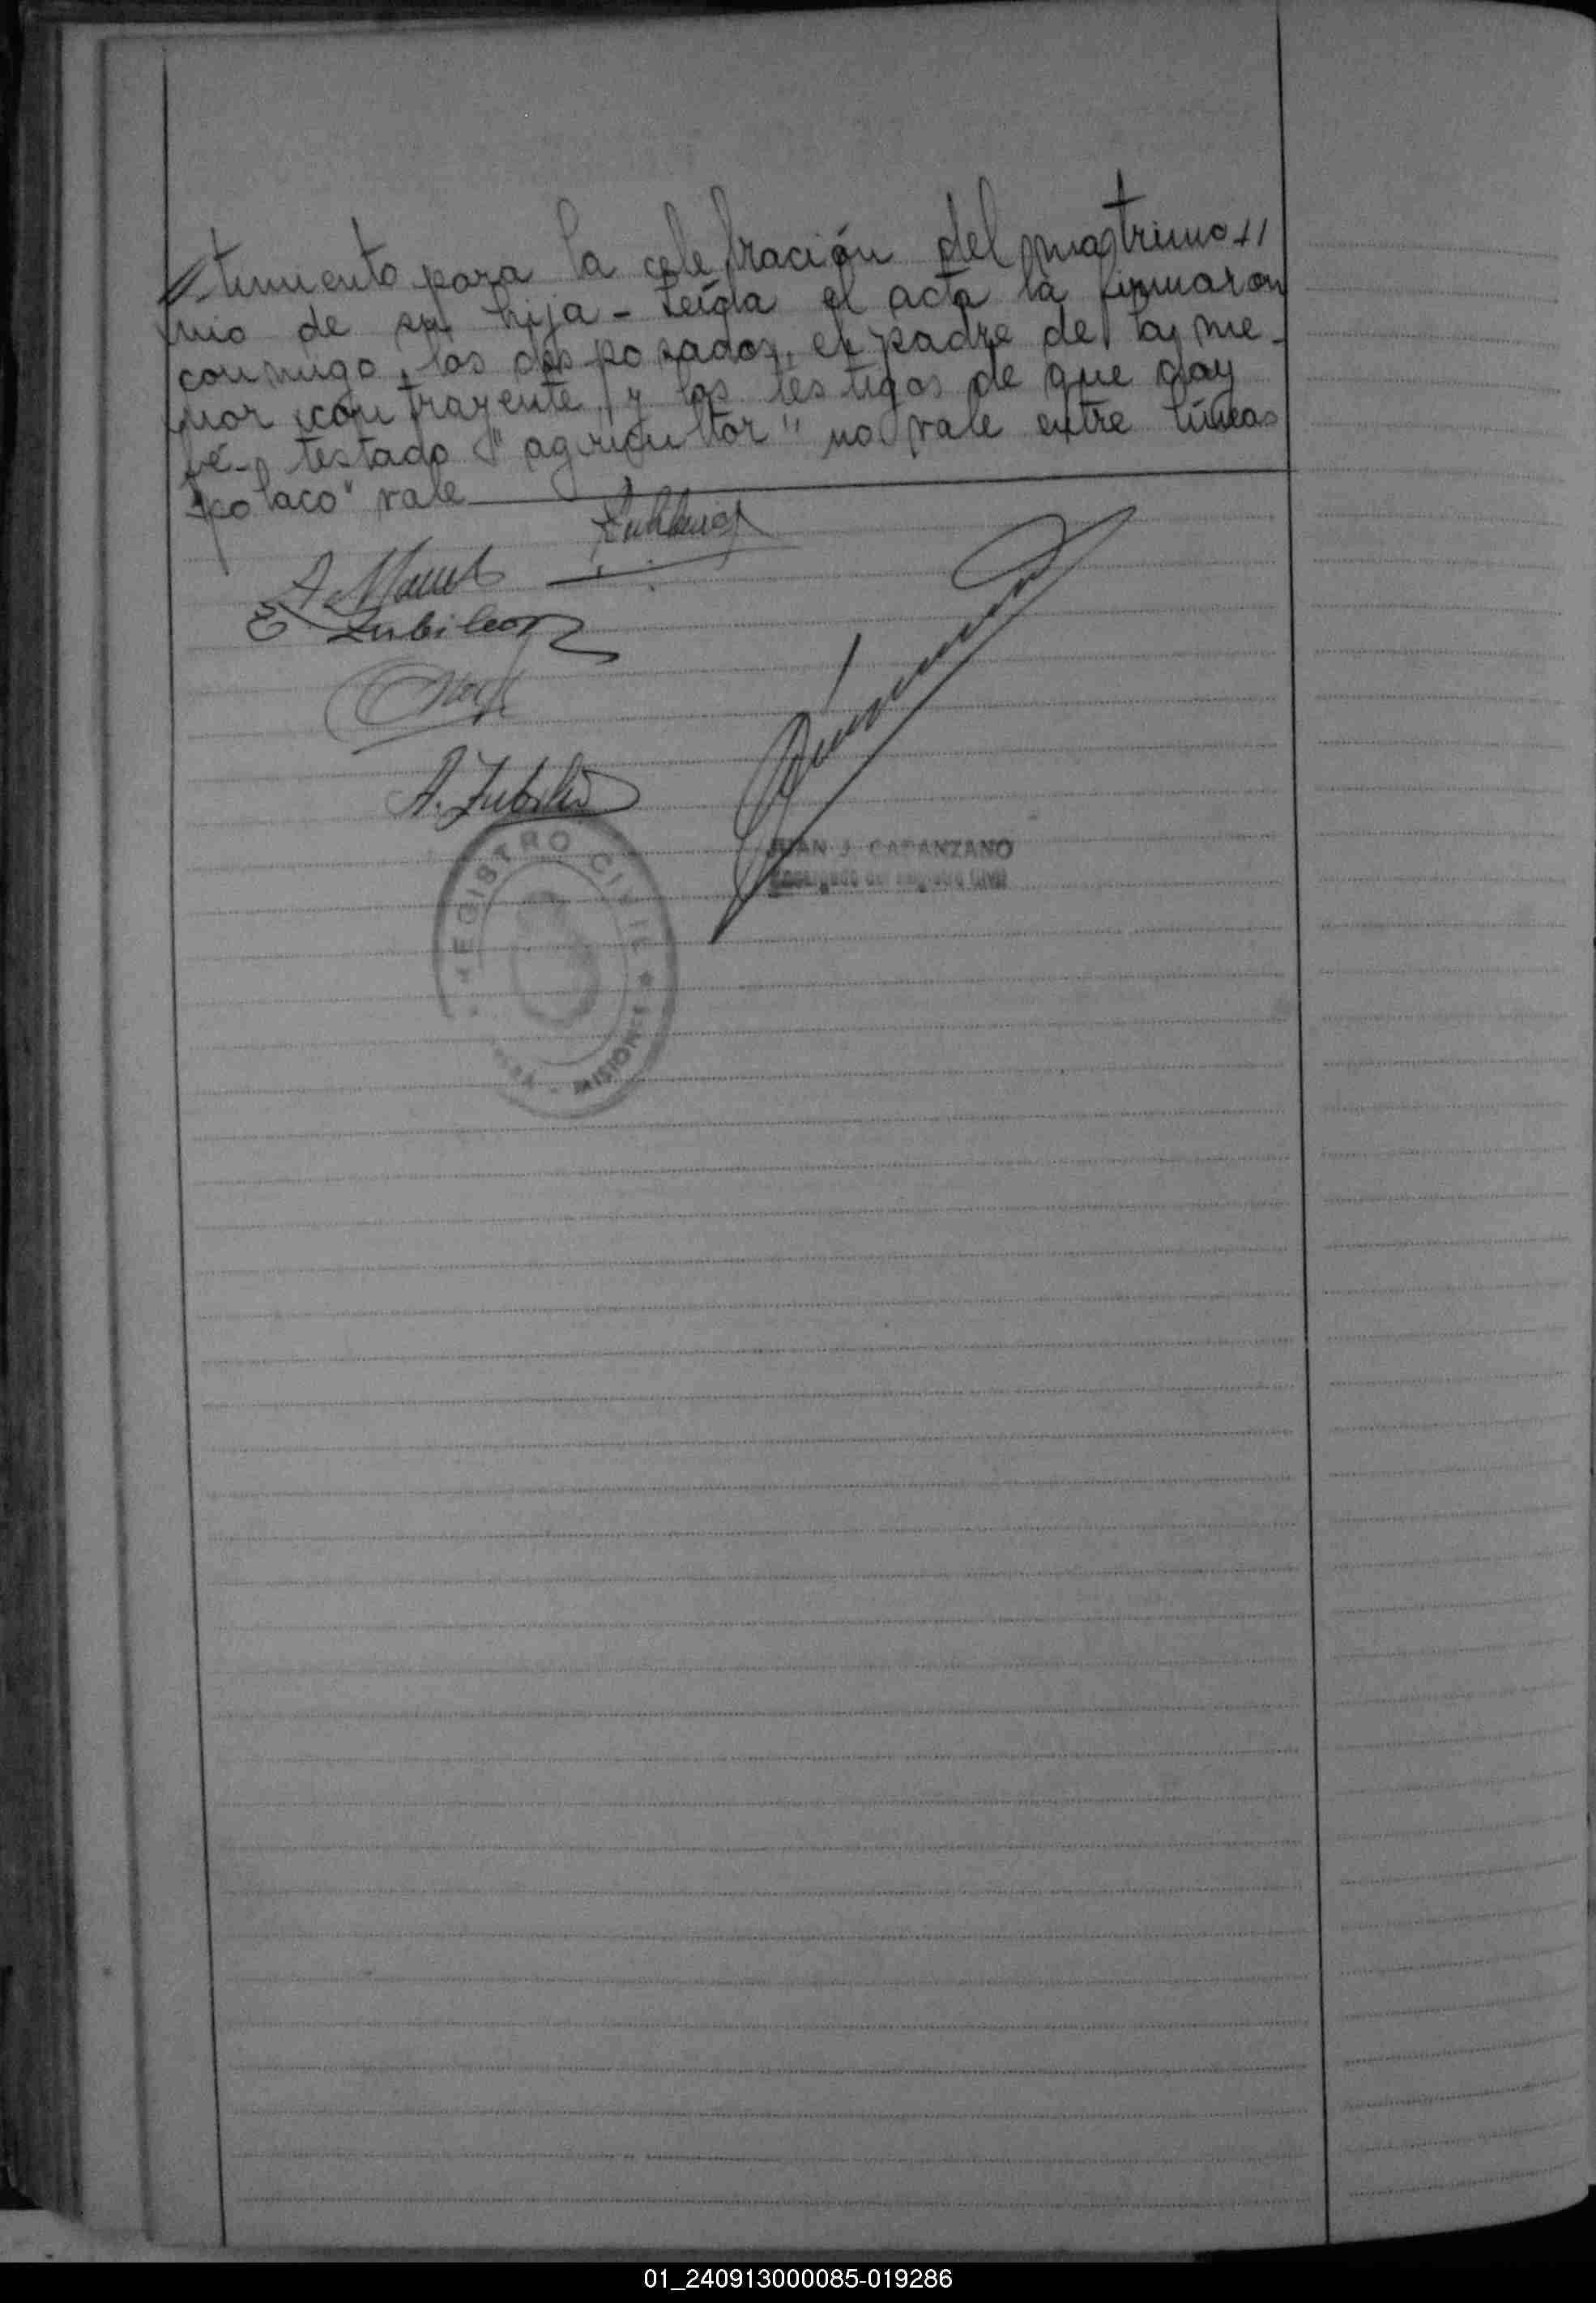 //-timiento para la celebración del matrimo//
nio de su hija - Leída el acta la firmaron
conmigo, los desposados, el padre de la me-
nor contrayente y los testigos de que doy
fé - testado "agricultor" no vale entre líneas
"polaco" vale
E Zubileor
A. Zubiles
JUAN J. CAPANZANO
Encargado del Registro Civil
REGISTRO CIVIL
MISIONES
01_240913000085-019286